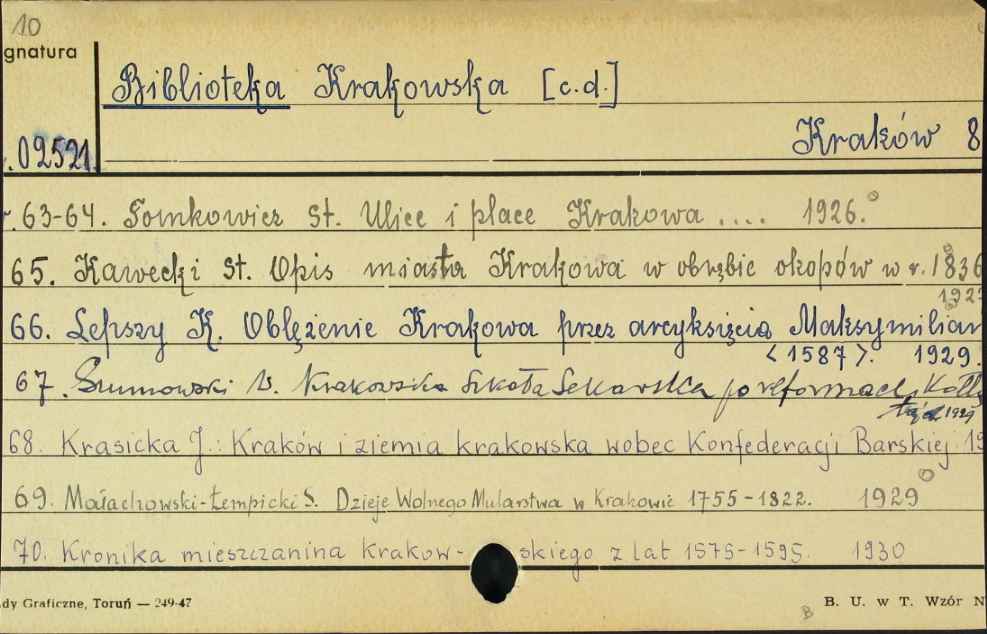 10
gnatura
Biblioteka Krakowska [c.d.]
Kraków 8
.02521.
.63-64. Tomkowicz St. Ulice i place Krakowa .... 1926.
65. Kawecki St. Opis miasta Krakowa w obrębie okopów w r. 1836
192
66. Lepszy K. Oblężenie Krakowa przez arcyksięcia Maksymilian
<1587>. 1929.
67. Szumowski W. Krakowska Szkoła Lekarska po reformach Kołłą
taja 1929
68. Krasicka J.: Kraków i ziemia krakowska wobec Konfederacji Barskiej 19
69. Małachowski-Łempicki S. Dzieje Wolnego Mularstwa w Krakowie 1755-1822. 1929
70. Kronika mieszczanina krakow-skiego z lat 1575-1595. 1930
dy Graficzne, Toruń — 249-47
B B. U. w T. Wzór N